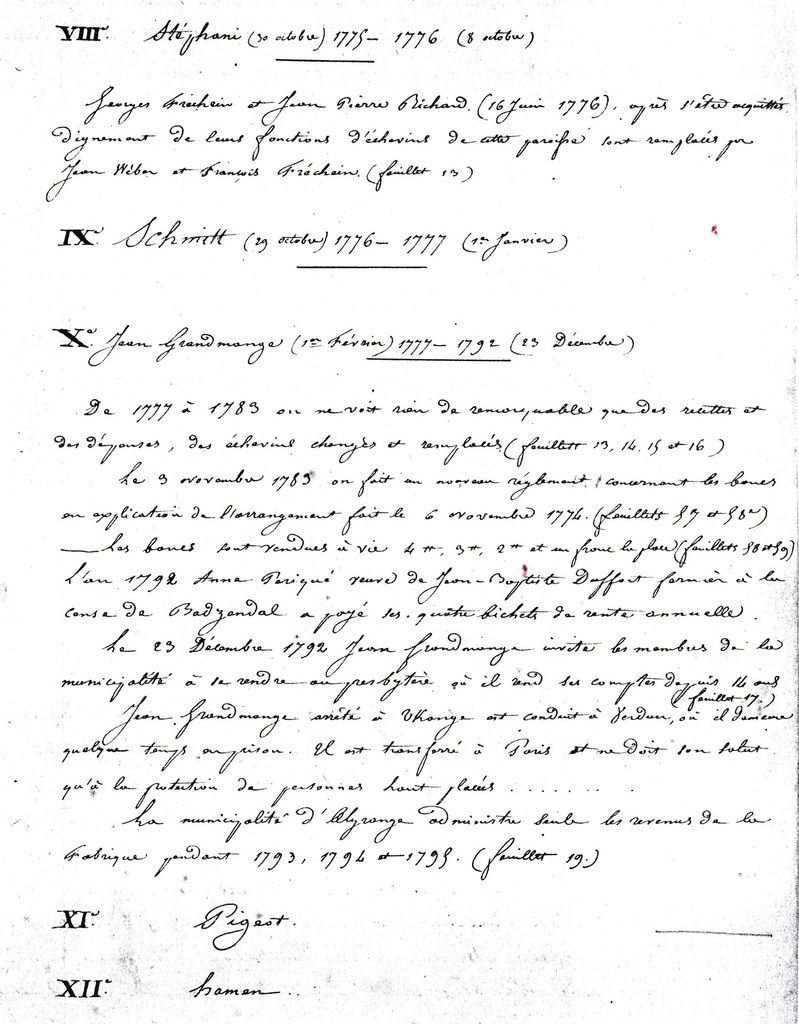 VIIIe. Stéphani (30 octobre) 1775 – 1776 (8 octobre)
Georges Fréchein et Jean Pierre Richard. (16 Juin 1776), après s'être acquittés
dignement de leurs fonctions d'échevins de cette paroisse sont remplacés par
Jean Wéber et François Fréchein. (feuillet 13)
IXe. Schmitt (29 octobre) 1776 – 1777 (1er Janvier)
Xe. Jean Grandmange (1er Février) 1777 – 1792 (23 Décembre)
De 1777 à 1783 on ne voit rien de remarquable que des recettes et
des dépenses, des échevins changés et remplacés. (feuillets 13, 14, 15 et 16)
Le 3 novembre 1783 on fait un nouveau réglement concernant les bancs
en explication de l'arrangement fait le 6 novembre 1774. (feuillets 57 et 58e)
— Les bancs sont vendus à vie 4 ₶, 3 ₶, 2 ₶ et un franc la place (feuillets 58 et 59)
L'an 1792 Anne Periqué veuve de Jean-Baptiste Daffort fermier à la
cense de Badzendal a payé ses quatre bichets de rente annuelle.
Le 23 Décembre 1792 Jean Grandmange invite les membres de la
municipalité à se rendre au presbytère où il rend ses comptes depuis 14 ans
(feuillet 17.)
Jean Grandmange arrêté à Ukange est conduit à Verdun, où il demeure
quelque temps en prison. Il est transferré à Paris et ne doit son salut
qu'à la protection de personnes haut placées . . . . . . . .
La municipalité d'Algrange administre seule les revenus de la
Fabrique pendant 1793, 1794 et 1795. (feuillet 19.)
XIe. Pigeot.
XIIe. Hamen . .